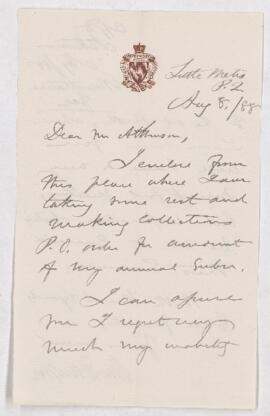 Little Metis
P.Q.
Aug 8. /88
Dear Mr Atkinson,
I enclose from
this place where I am
taking some rest and
making collections
P.O. order for amount
of my annual Subn.
I can assure
you I regret very
much my inability